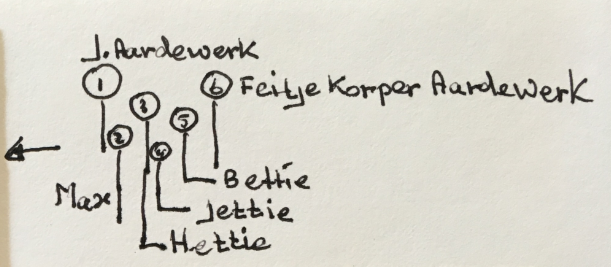 J. Aardewerk
1
6 Feitje Korper Aardewerk
3
5
2
4
Bettie
Max
Jettie
Hettie